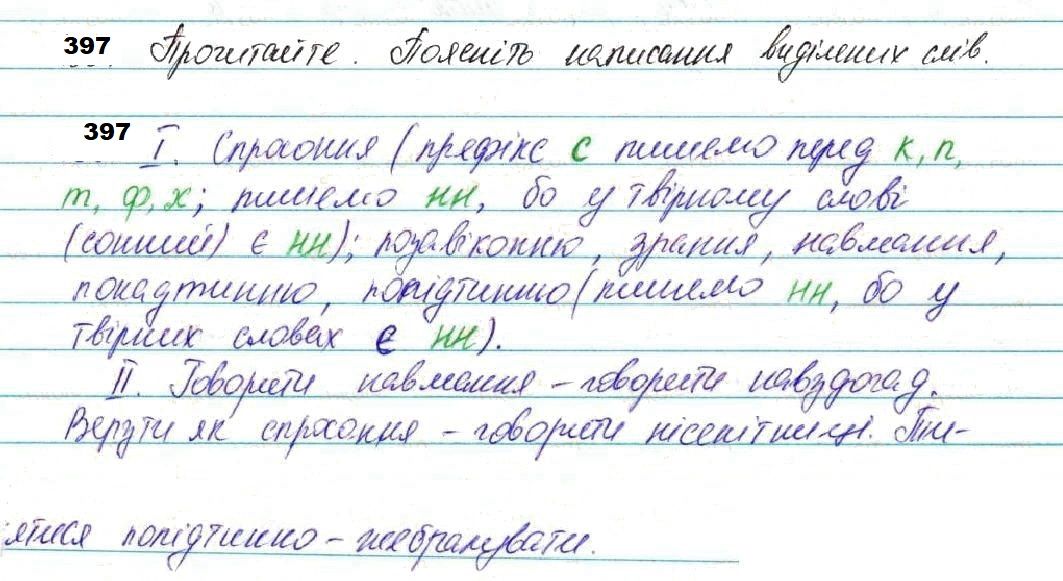 397 Прочитайте. Поясніть написання виділених слів.
397 I. Спросоння (префікс с пишемо перед к, п,
т, ф, х; пишемо нн, бо у твірному слові
(сонний) є нн); позавіконню, зрання, навмання,
понадтинню, попідтинню (пишемо нн, бо у
твірних словах є нн).
II. Говорити навмання – говорити навздогад.
Верзти як спросоння – говорити нісенітниці. Тин-
ятися попідтинню – жебракувати.